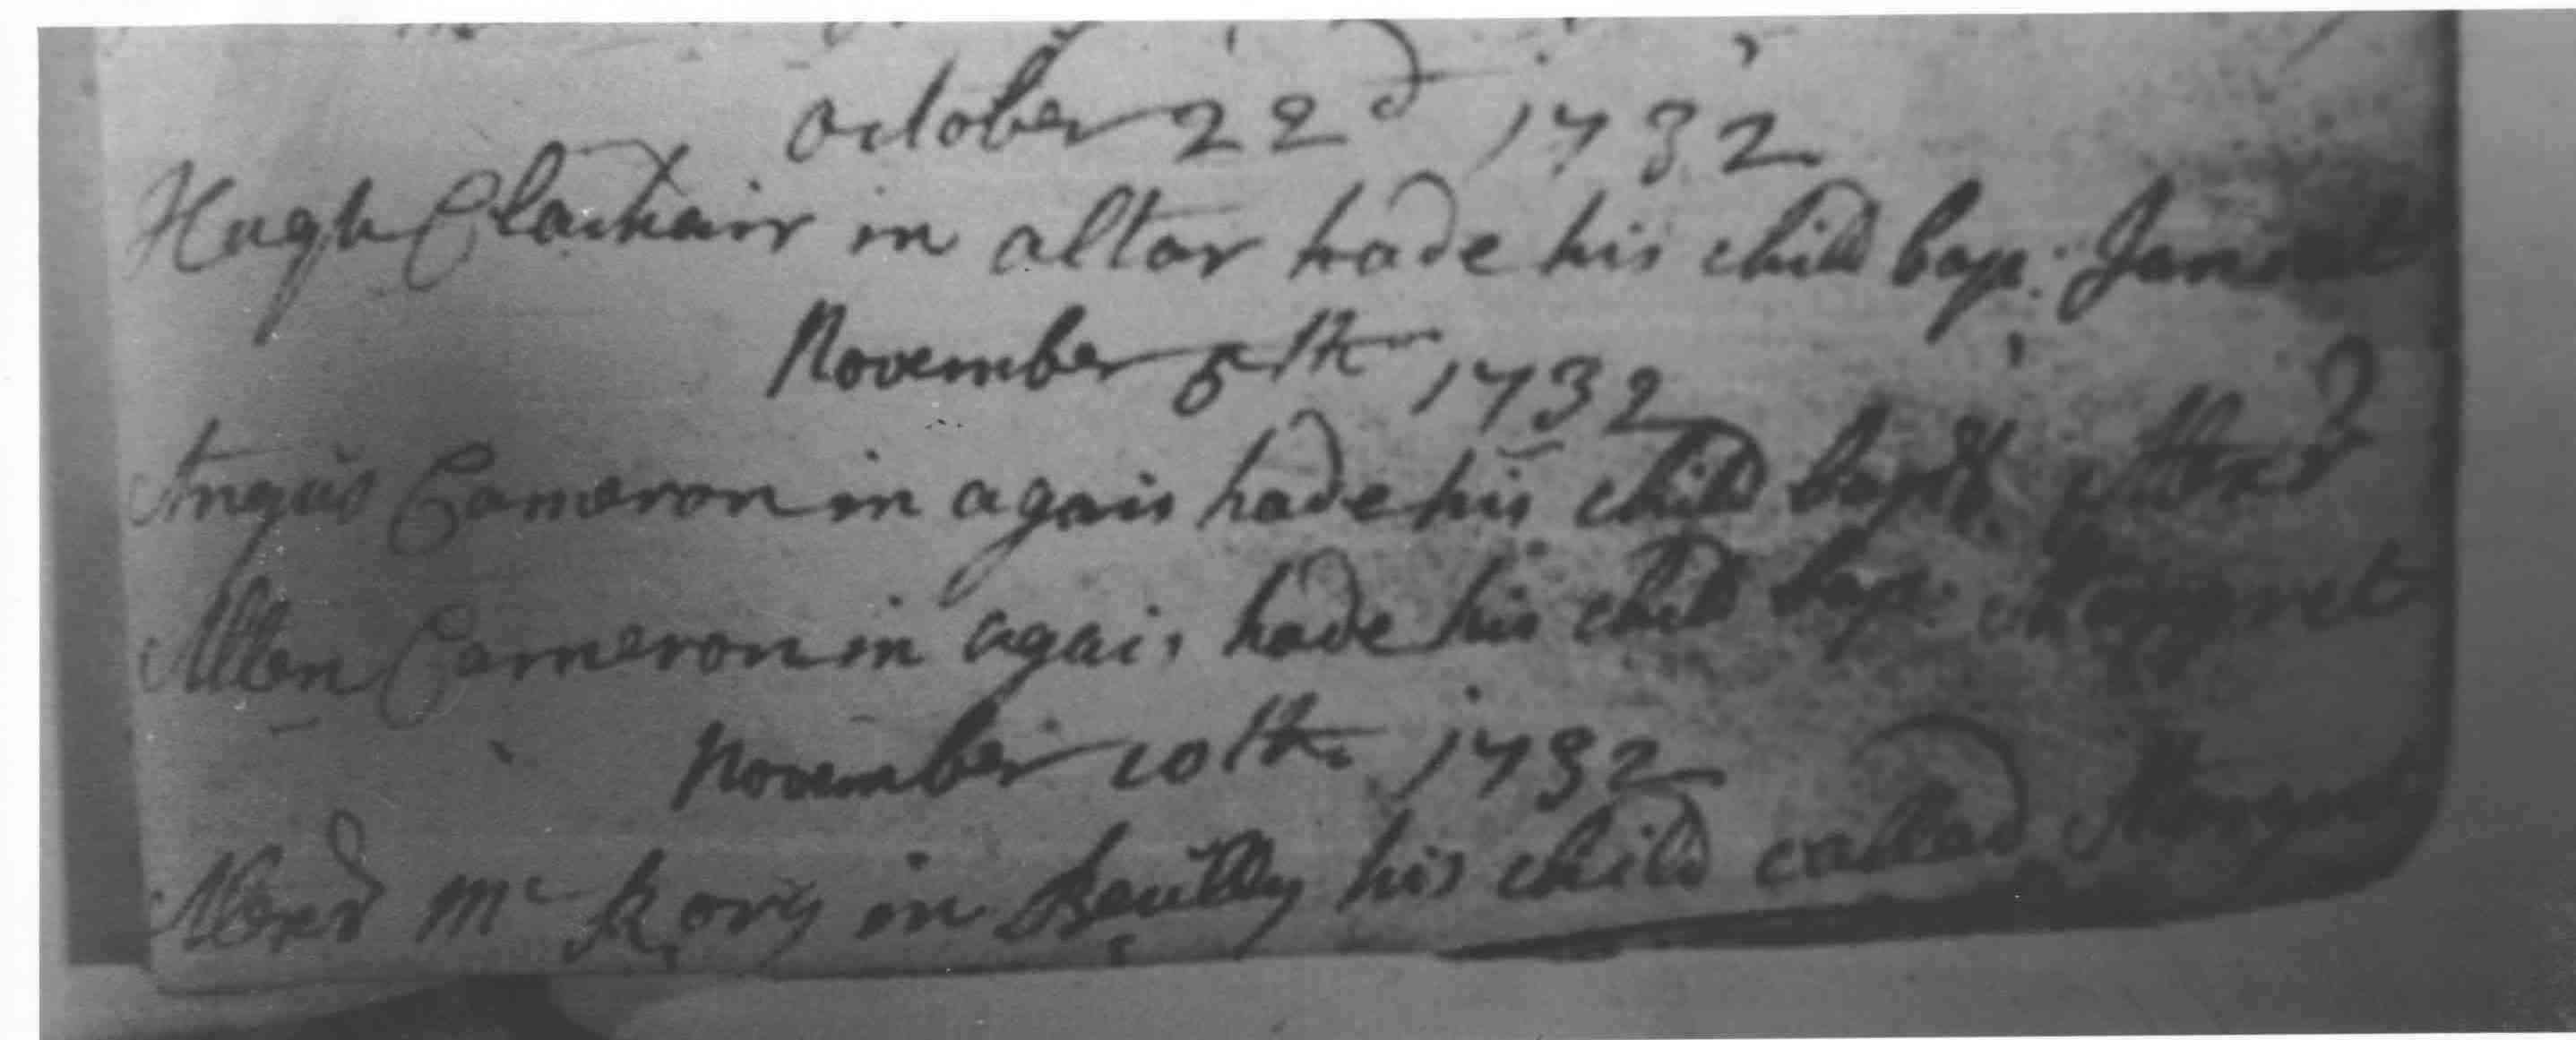 October 22d 1732
Hugh Clachair in altar hade his child bap: Janet
November 5th 1732
Angus Cameron in agais hade his child bapt: Alexr
Allen Cameron in agais hade his child bap: Margret
November 10th 1732
Alexr Mc Rory in Beuilly his child called